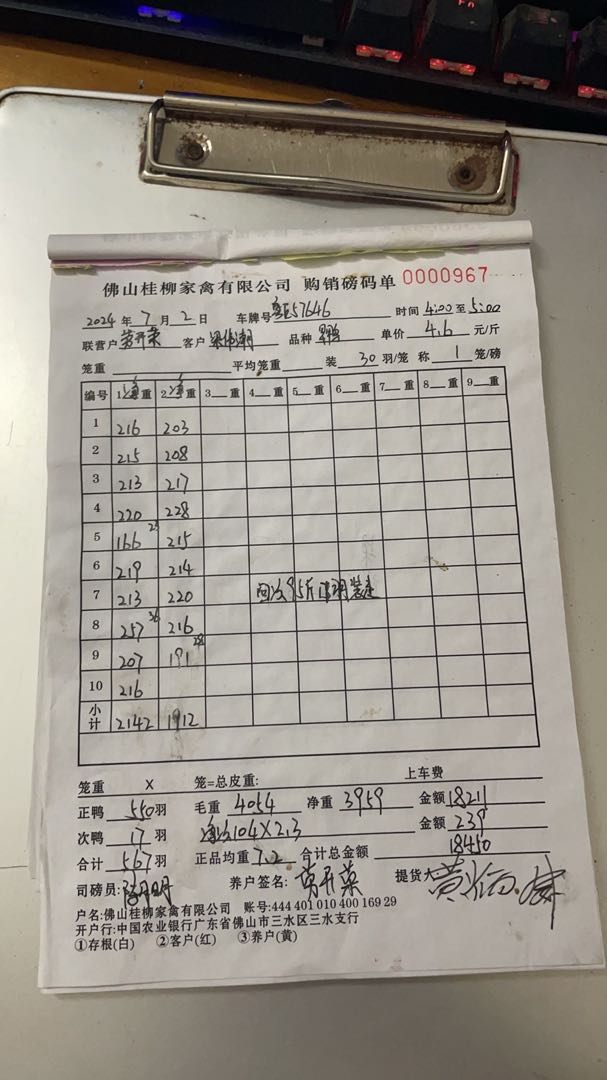 佛山桂柳家禽有限公司 购销磅码单 0000967
2024 年 7 月 2 日 车牌号 57646 时间 4:00 至 5:00
联营户 客户 品种 单价 4.6 元/斤
笼重 平均笼重 装 30 羽/笼 称 1 笼/磅
编号 1净重 2净重 3 重 4 重 5 重 6 重 7 重 8 重 9 重
1 216 203
2 215 208
3 213 217
4 220 228
5 166 23 215
6 219 214
7 213 220 回次95斤 装走
8 257 36 216
9 207 191 28
10 216
小计 2142 1912
笼重 X 笼=总皮重: 上车费
正鸭 550 羽 毛重 4054 净重 3959 金额 18211
次鸭 17 羽 104×2.3 金额 239
合计 567 羽 正品均重 7.2 合计总金额 18450
司磅员: 养户签名: 提货人
户名:佛山桂柳家禽有限公司 账号:444 401 010 400 169 29
开户行:中国农业银行广东省佛山市三水区三水支行
①存根(白) ②客户(红) ③养户(黄)